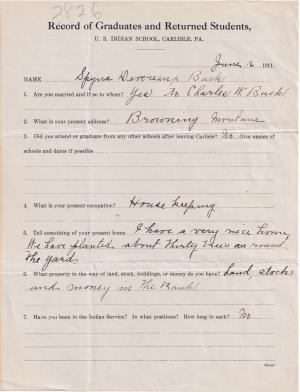 2826
Record of Graduates and Returned Students,
U. S. INDIAN SCHOOL, CARLISLE, PA.
June 12 1911.
NAME Spyna Devereaux Buck
1. Are you married and if so to whom? Yes to Charles W. Buck
2. What is your present address? Browning Montana
3. Did you attend or graduate from any other schools after leaving Carlisle? No Give names of
schools and dates if possible
4. What is your present occupation? House keeping
5. Tell something of your present home I have a very nice home,
We have planted about thirty trees around
the yard.
6. What property in the way of land, stock, buildings, or money do you have? Land, stock
and money in the Bank
7. Have you been in the Indian Service? In what positions? How long in each? No